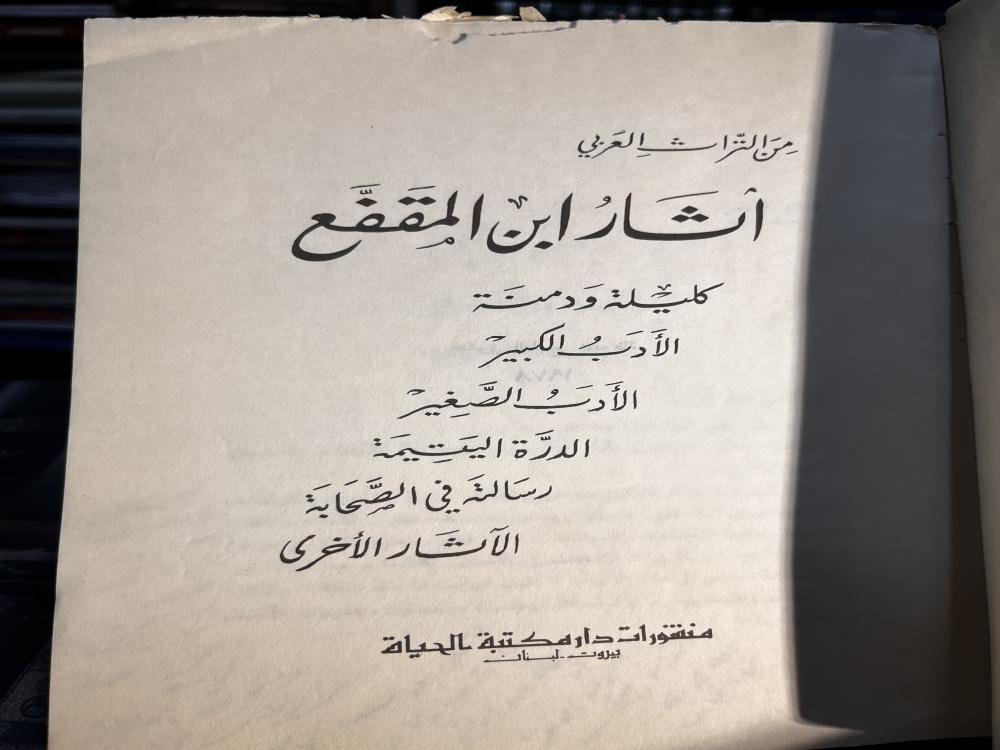 مِنَ التّراثِ العَرَبي
آثَارُ ابن المقَفَّع
كليْلة وَدمنَة
الأَدَبُ الكبير
الأَدَبُ الصَّغِير
الدرَّة اليَتِيمَة
رسَالَة في الصَّحَابَة
الآثَار الأخرى
منشورات دار مكتبة الحياة
بيروت - لبنان